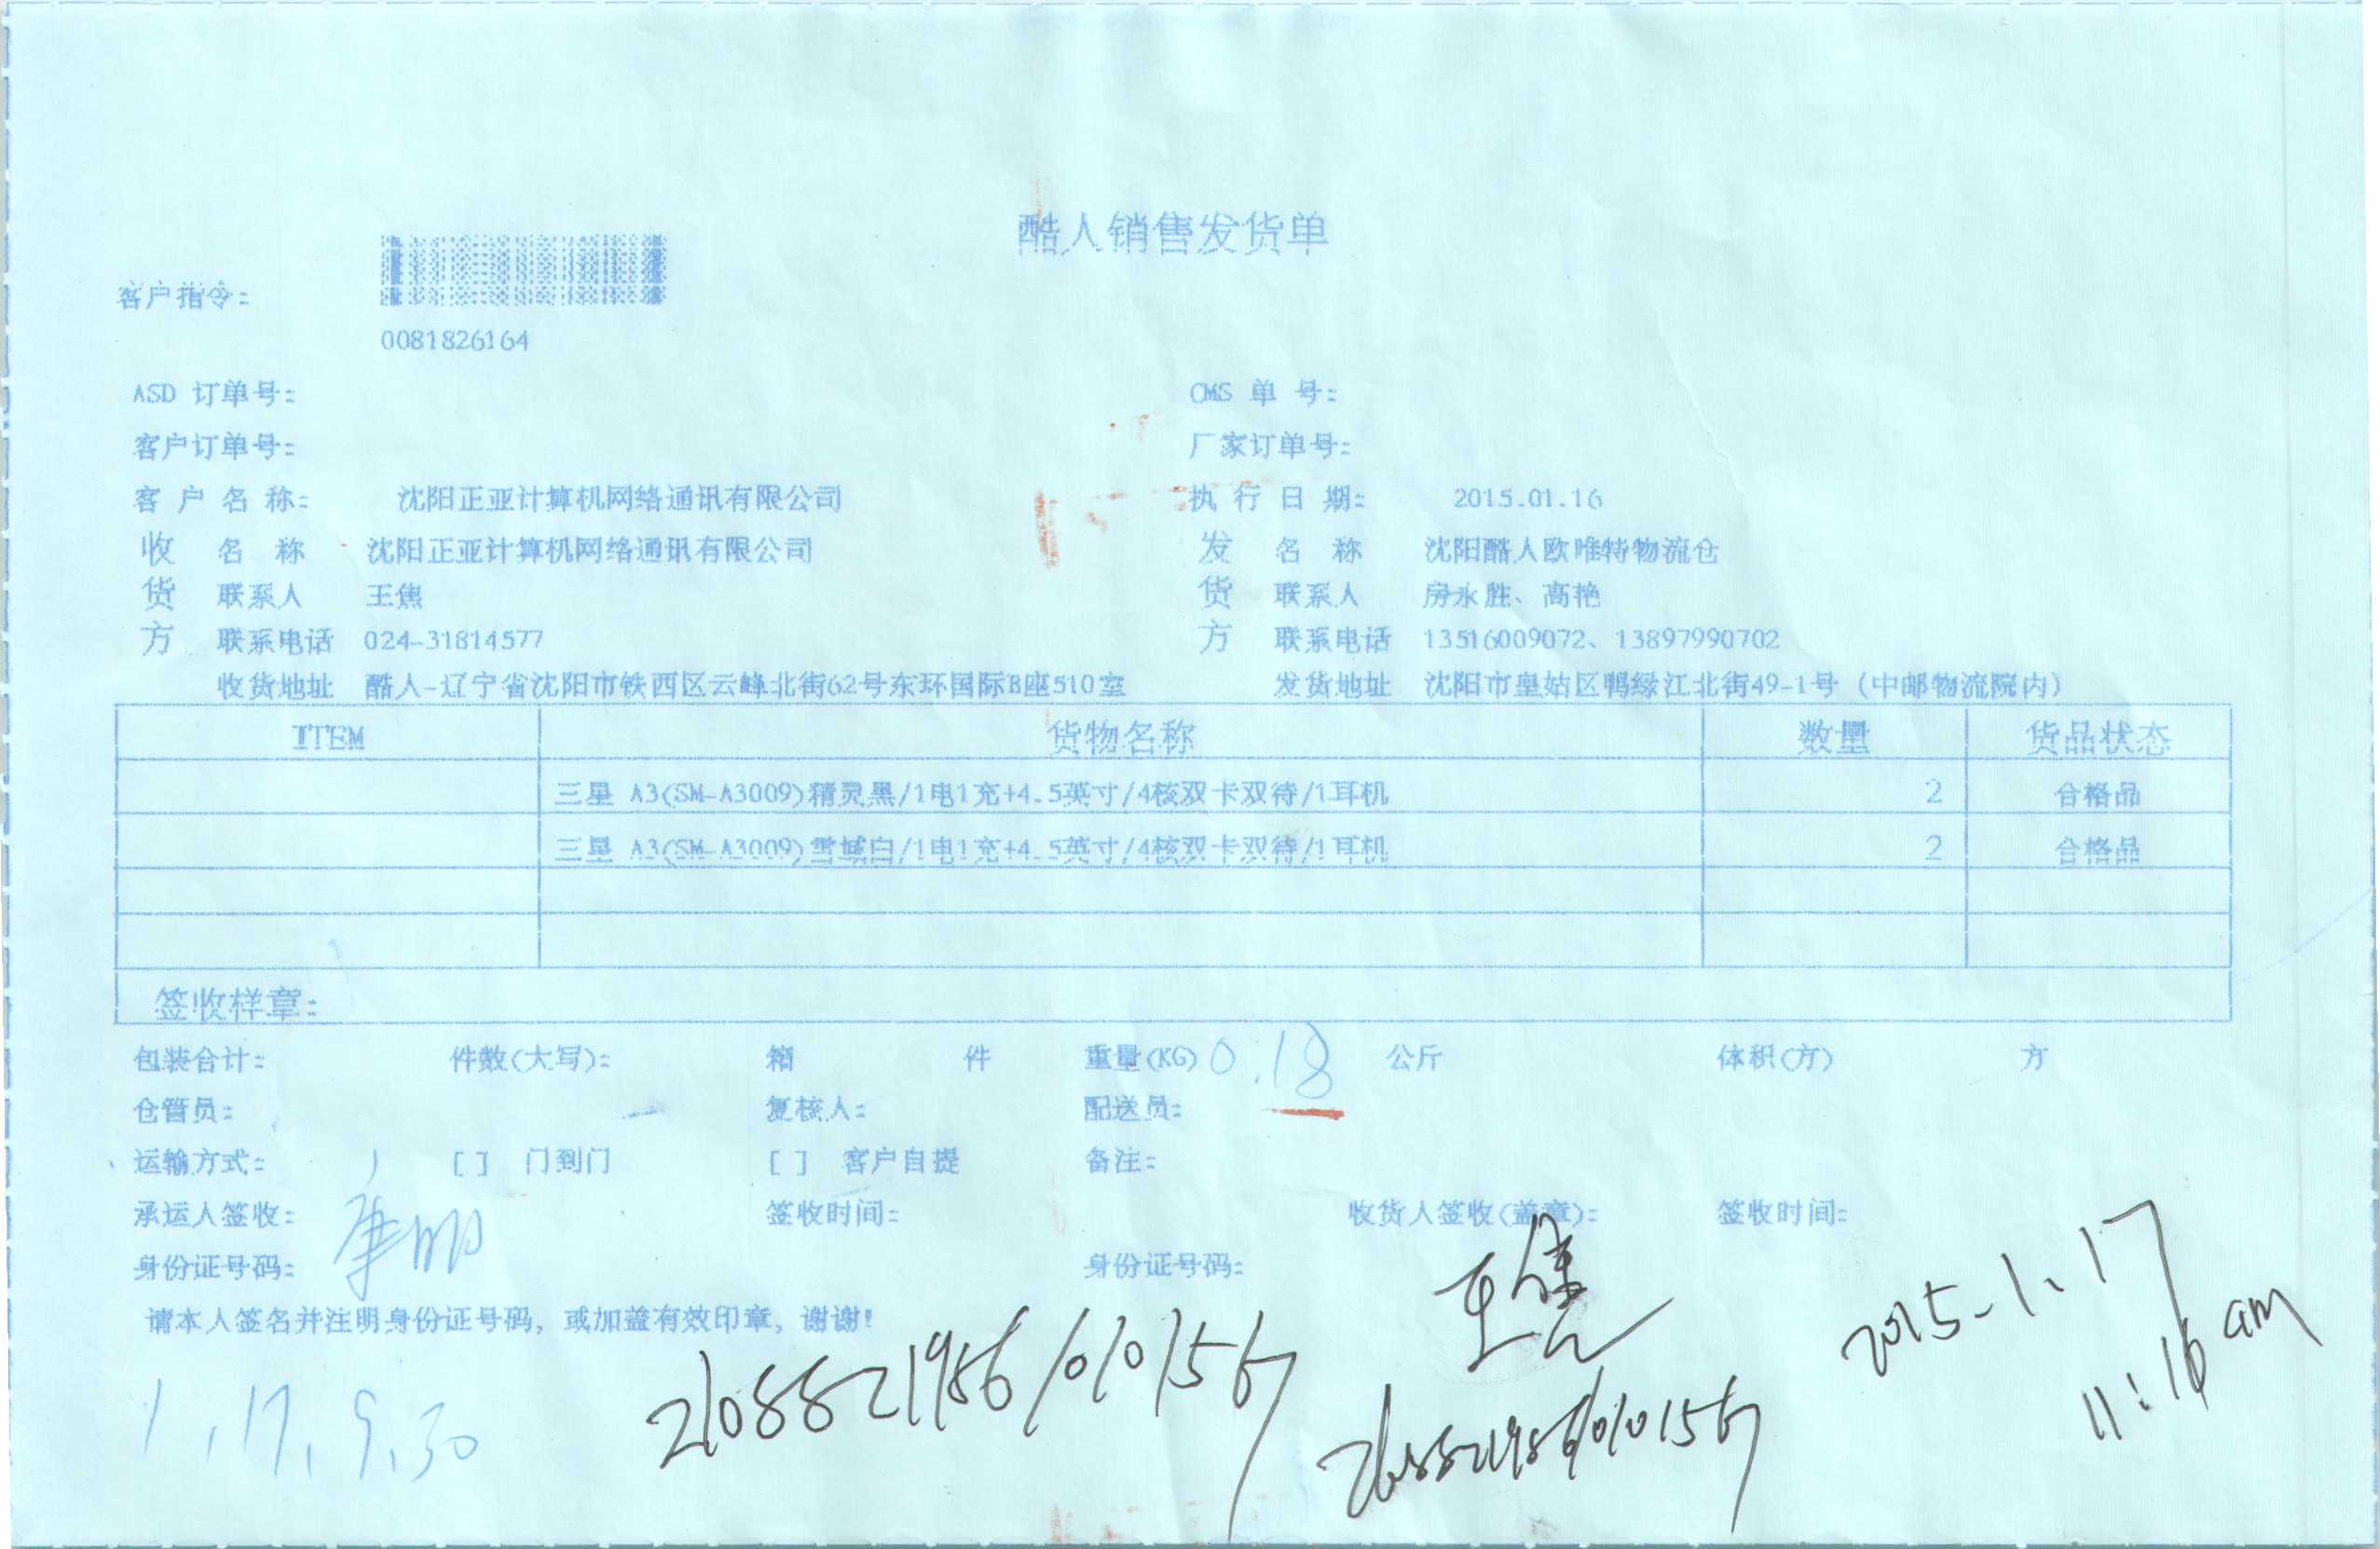 酷人销售发货单
客户指令:
0081826164
ASD 订单号: CMS 单 号:
客户订单号: 厂家订单号:
客 户 名 称: 沈阳正亚计算机网络通讯有限公司 执 行 日 期: 2015.01.16
收 名 称 沈阳正亚计算机网络通讯有限公司 发 名 称 沈阳酷人欧唯特物流仓
货 联系人 王焦 货 联系人 房永胜、高艳
方 联系电话 024-31814577 方 联系电话 13516009072、13897990702
收货地址 酷人-辽宁省沈阳市铁西区云峰北街62号东环国际B座510室 发货地址 沈阳市皇姑区鸭绿江北街49-1号 (中邮物流院内)
ITEM 货物名称 数量 货品状态
三星 A3(SM-A3009)精灵黑/1电1充+4.5英寸/4核双卡双待/1耳机 2 合格品
三星 A3(SM-A3009)雪域白/1电1充+4.5英寸/4核双卡双待/1耳机 2 合格品
签收样章:
包装合计: 件数(大写): 箱 件 重量(KG) 0.18 公斤 体积(方) 方
仓管员: 复核人: 配送员:
运输方式: [ ] 门到门 [ ] 客户自提 备注:
承运人签收: 签收时间: 收货人签收(盖章): 签收时间:
身份证号码: 身份证号码:
2015-1.17
11:16 am
请本人签名并注明身份证号码, 或加盖有效印章, 谢谢!
1.17.9.30